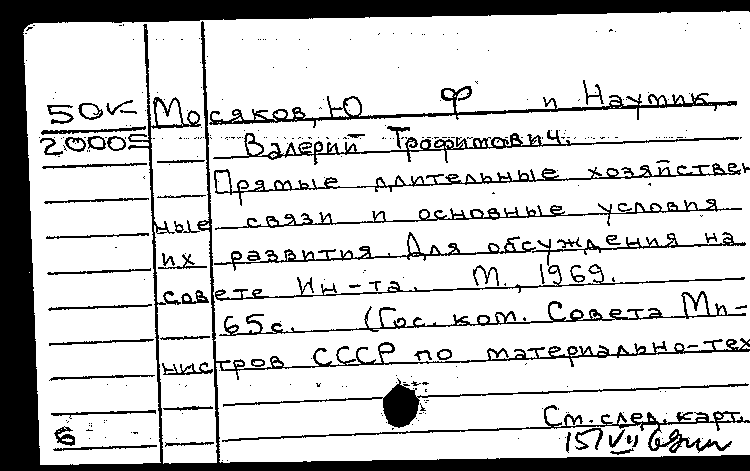 50К Мосяков, Ю Ф и Наумик,
20005 Валерий Трофимович.
Прямые длительные хозяйствен
ные связи и основные условия
их развития. Для обсуждения на
совете Ин-та. М., 1969.
65с. (Гос. ком. Совета Ми-
нистров СССР по материально-тех
См. след. карт.
6